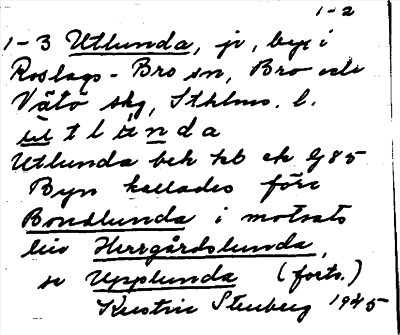 1-2
1-3 Utlunda, jr, by i
Roslags-Bro sn, Bro och
Vätö skg, Sthlms. l.
ut l ù n d a
Utlunda bek kb ek G85
Byn kallades förr
Bondlunda i motsats
till Herrgårdslunda,
se Upplunda (forts.)
Kerstin Stenberg 1945